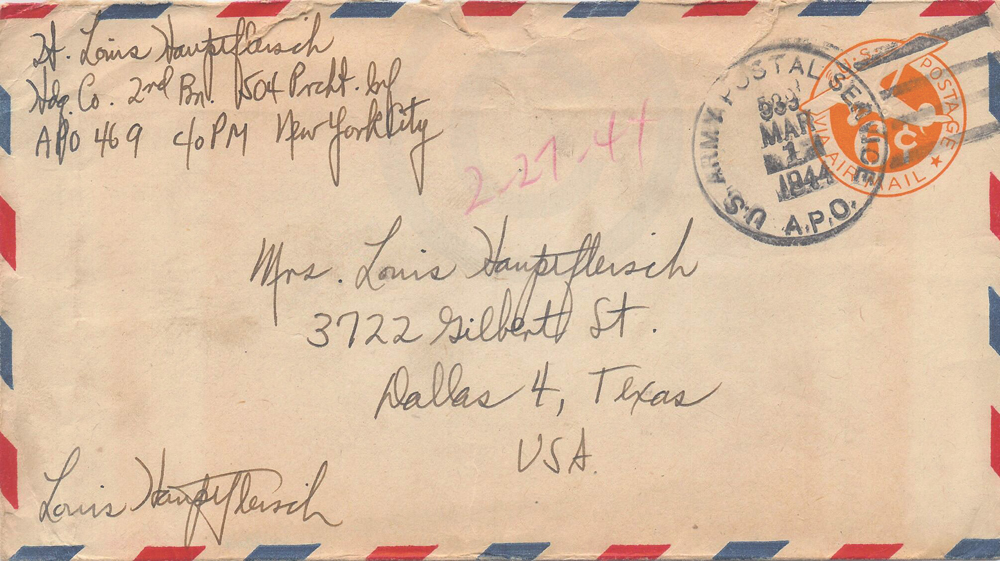 Lt. Louis Hauptfleisch
Hdq. Co. 2nd Bn. 504 Prcht. Inf
APO 469 c/o PM New York City
2-27-44
U.S. ARMY POSTAL SERVICE
MAR
1
1944
A.P.O.
U.S. POSTAGE
6c
VIA AIR MAIL
Mrs. Louis Hauptfleisch
3722 Gilbert St.
Dallas 4, Texas
USA.
Louis Hauptfleisch